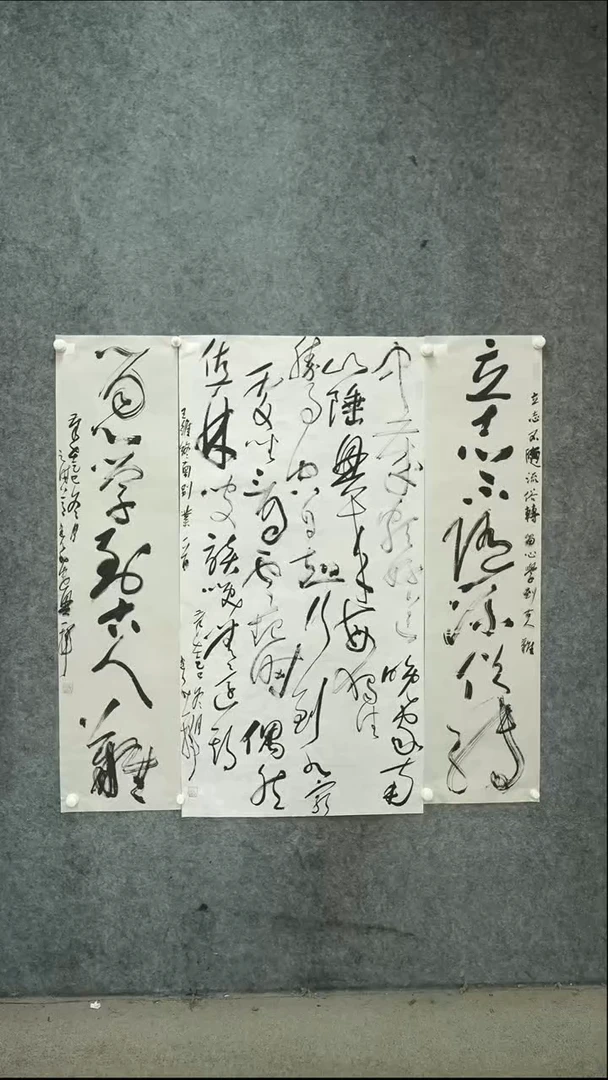 立志不隨流俗轉留心學到古人難
立志不随流俗转
中歲頗好道晚家南
山陲興來每獨往
勝事空自知行到水窮
處坐看雲起時偶然
值林叟談笑無還期
王維終南別業一首
乙巳冬月
留心学到古人難
乙巳冬月